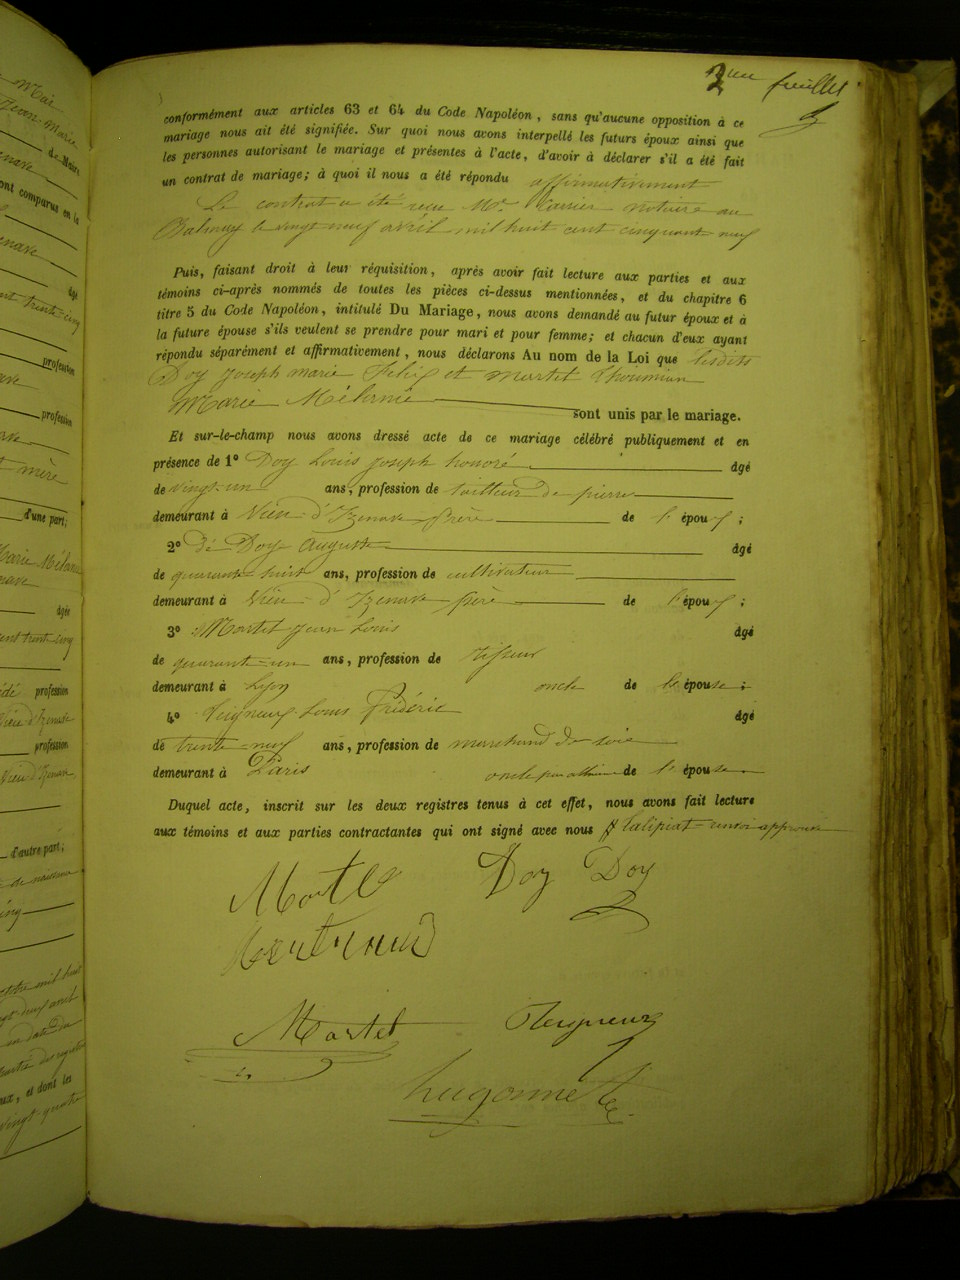 2me feuillet
conformément aux articles 63 et 64 du Code Napoléon, sans qu'aucune opposition à ce
mariage nous ait été signifiée. Sur quoi nous avons interpellé les futurs époux ainsi que
les personnes autorisant le mariage et présentes à l'acte, d'avoir à déclarer s'il a été fait
un contrat de mariage; à quoi il nous a été répondu affirmativement
Le contrat a été reçu Me notaire au
le vingt neuf avril mil huit cent cinquante neuf
Puis, faisant droit à leur réquisition, après avoir fait lecture aux parties et aux
témoins ci-après nommés de toutes les pièces ci-dessus mentionnées, et du chapitre 6
titre 5 du Code Napoléon, intitulé Du Mariage, nous avons demandé au futur époux et à
la future épouse s'ils veulent se prendre pour mari et pour femme; et chacun d'eux ayant
répondu séparément et affirmativement, nous déclarons Au nom de la Loi que lesdits
Doy Joseph marie Félix et Martel
Marie Mélanie sont unis par le mariage.
Et sur-le-champ nous avons dressé acte de ce mariage célébré publiquement et en
présence de 1° Doy Louis Joseph honoré âgé
de vingt-un ans, profession de tailleur de pierre
demeurant à Vieu-d'Izenave frère de l'époux;
2° de Doy Auguste âgé
de quarante-huit ans, profession de cultivateur
demeurant à Vieu-d'Izenave père de l'époux;
3° Martel Jean Louis âgé
de quarante-un ans, profession de tisseur
demeurant à Lyon oncle de l'épouse;
4° Louis Frédéric âgé
de trente-neuf ans, profession de marchand de soie
demeurant à Paris oncle par alliance de l'épouse
Duquel acte, inscrit sur les deux registres tenus à cet effet, nous avons fait lecture
aux témoins et aux parties contractantes qui ont signé avec nous
Martel Doy Doy
Martel
hugonnet